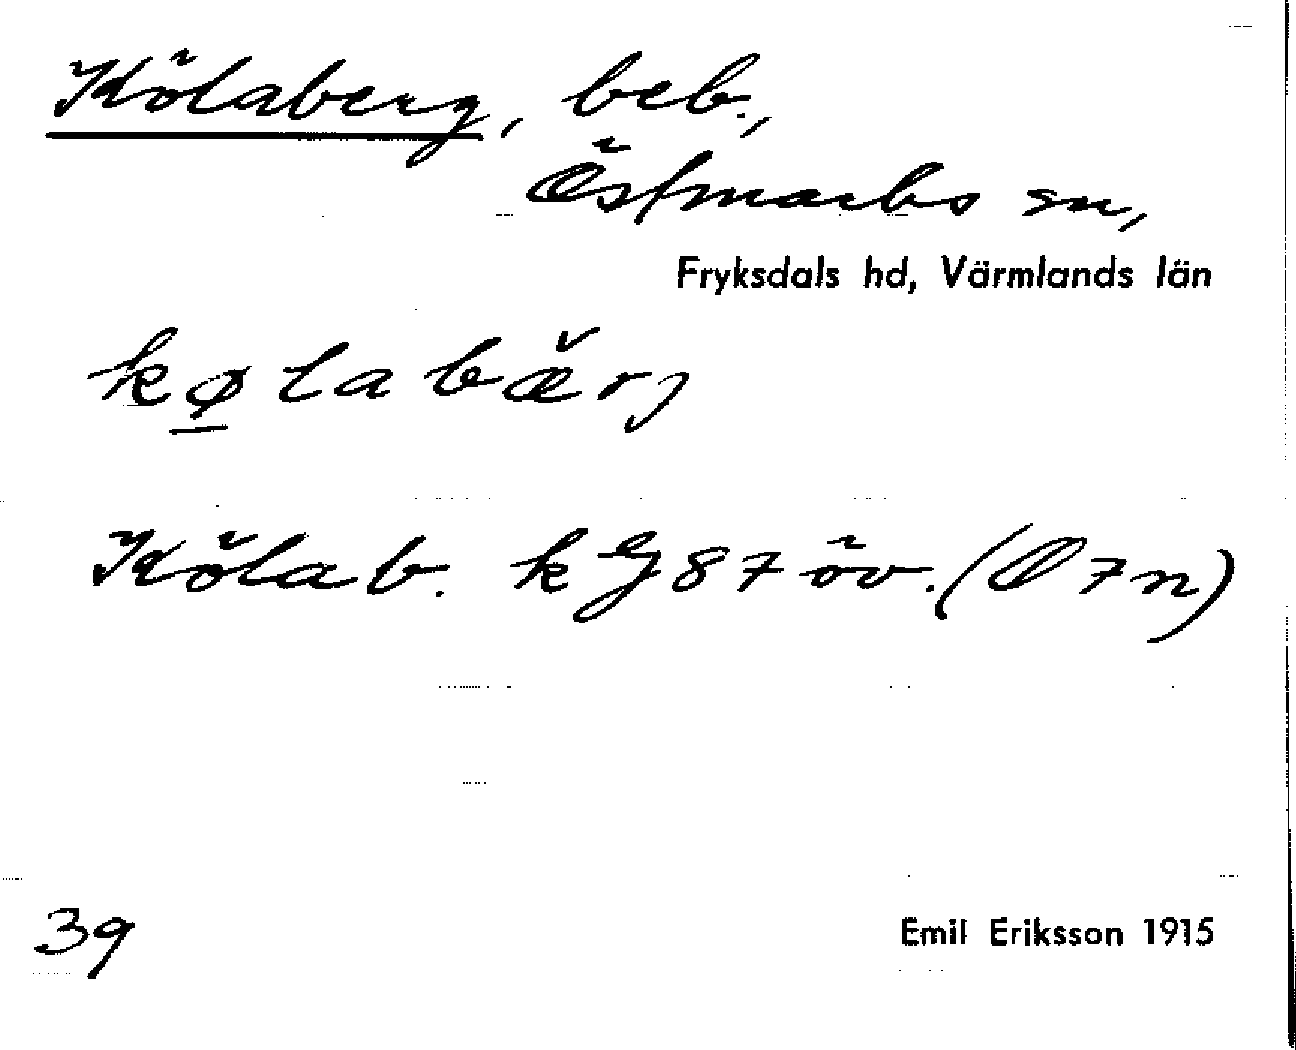 Kölaberg, beb.,
Östmarks sn,
Fryksdals hd, Värmlands län
kølabæ̆rj
Kölab. kG 87 öv. (Ø 7 n)
39
Emil Eriksson 1915